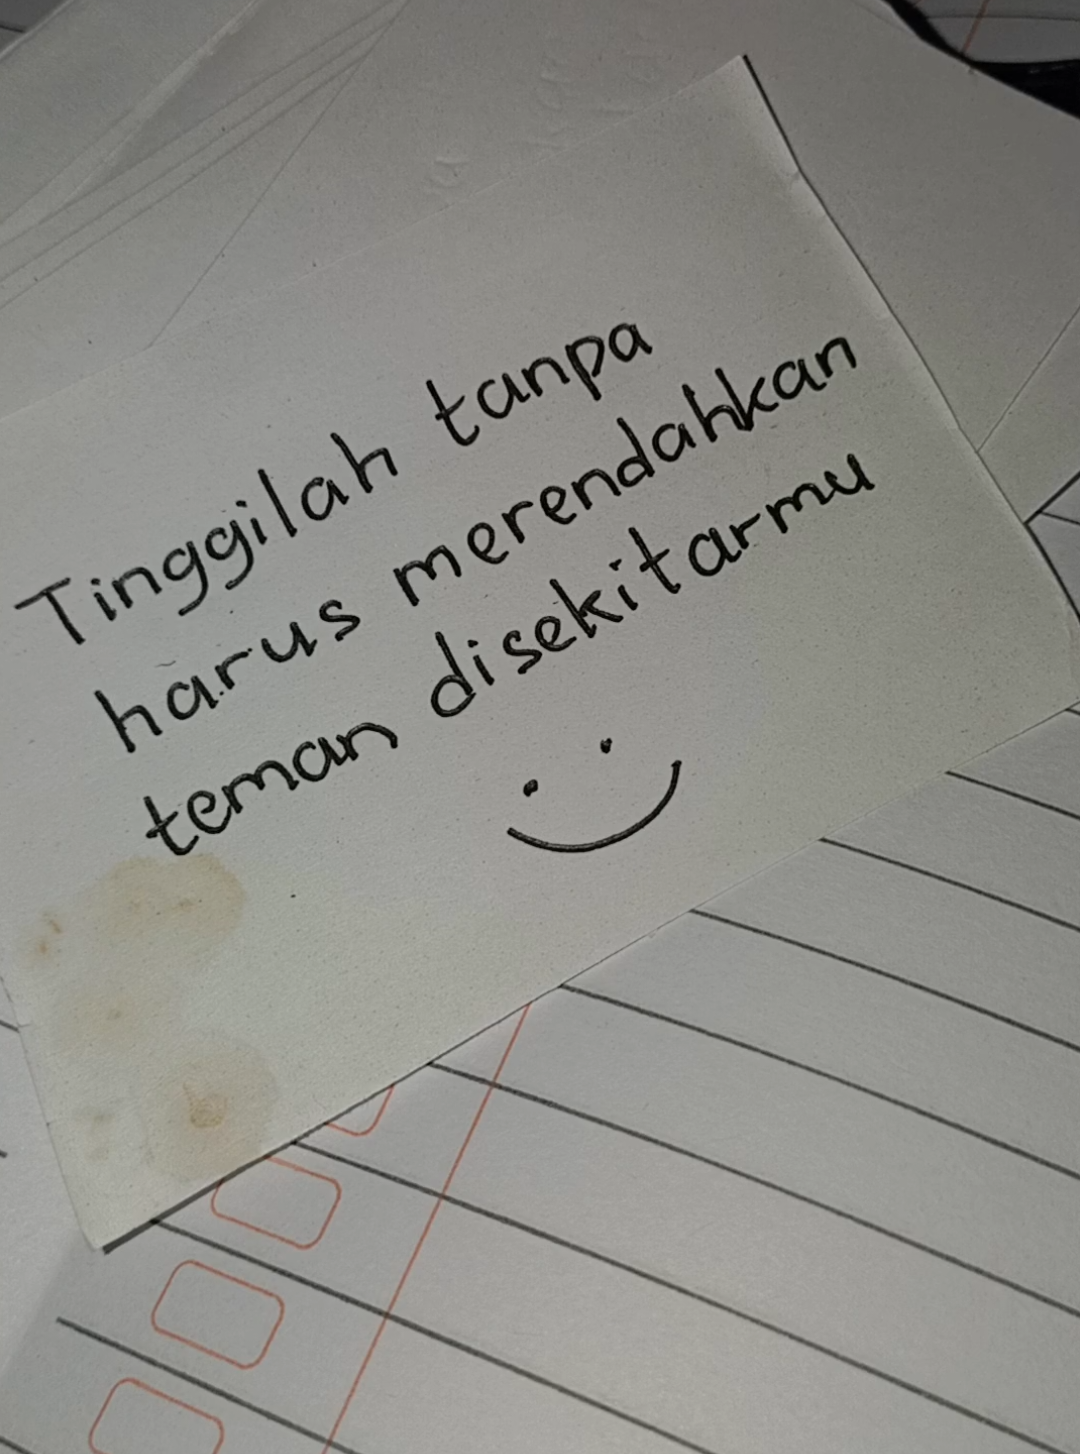 Tinggilah tanpa
harus merendahkan
teman disekitarmu